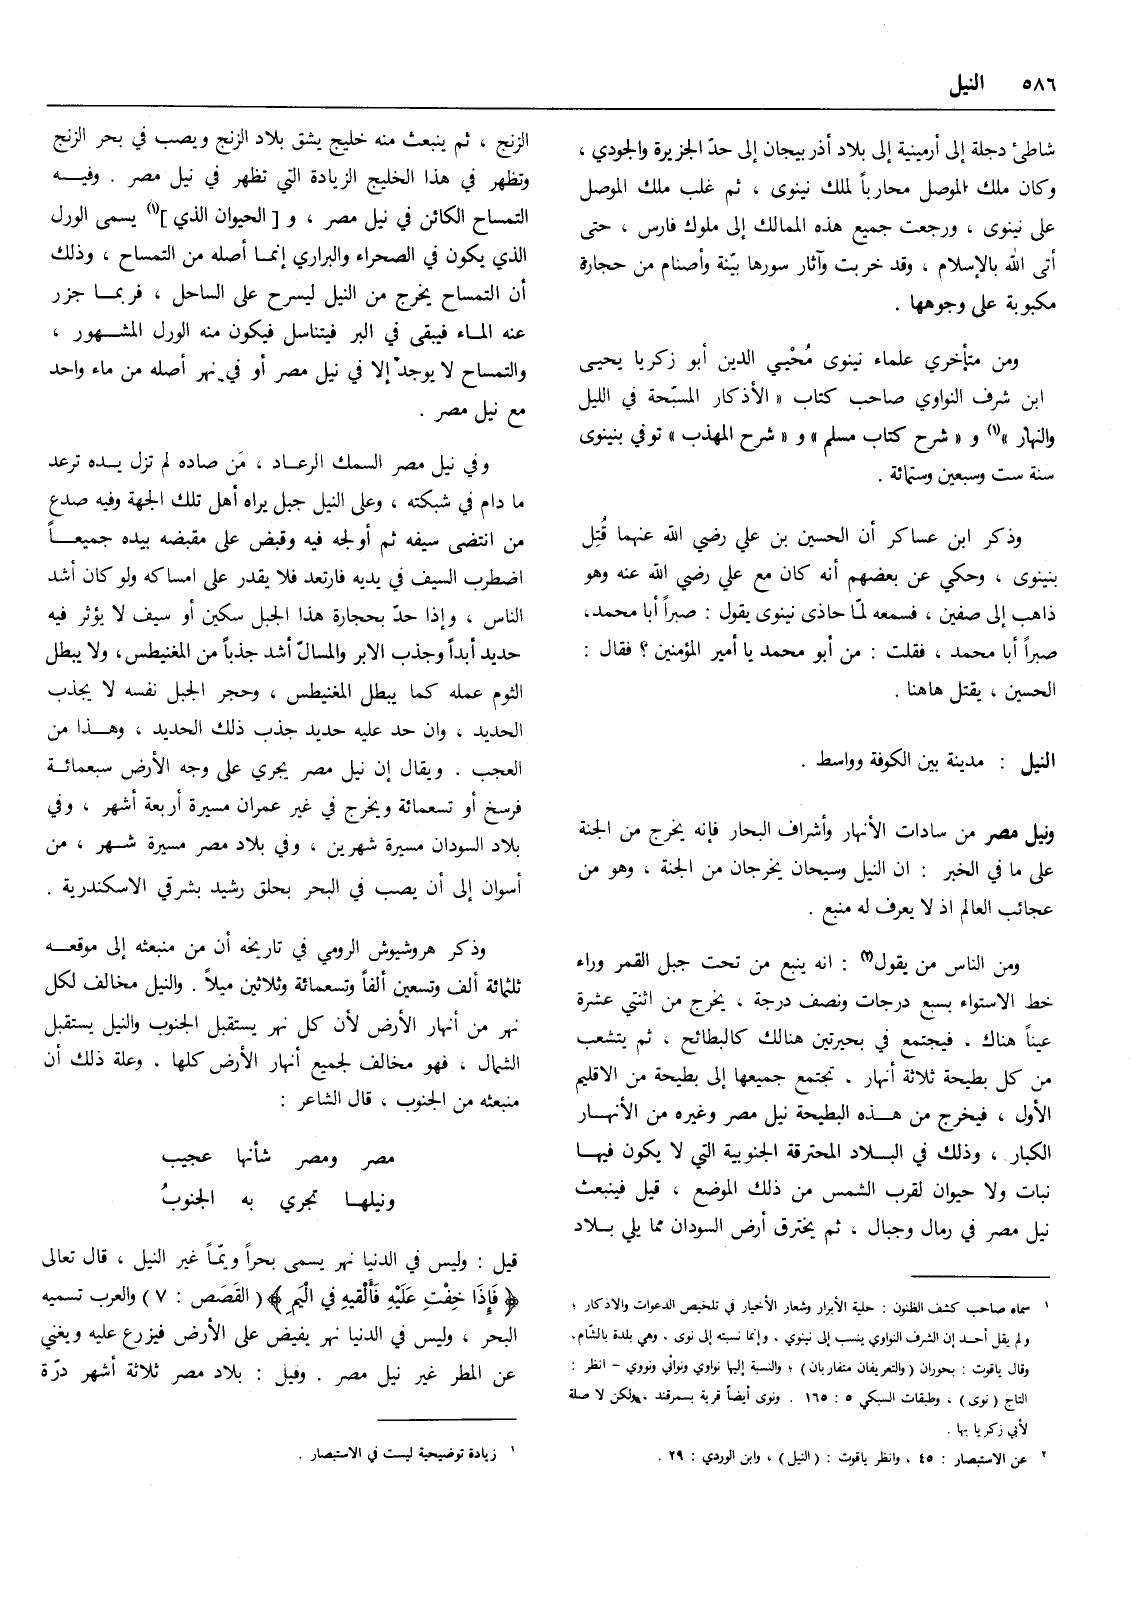 ٥٨٦ النيل
شاطئ دجلة إلى أرمينية إلى بلاد أذربيجان إلى حدّ الجزيرة والجودي ،
وكان ملك الموصل محارباً لملك نينوى ، ثم غلب ملك الموصل
على نينوى ، ورجعت جميع هذه الممالك إلى ملوك فارس ، حتى
أتى الله بالإسلام ، وقد خربت وآثار سورها بيّنة وأصنام من حجارة
مكبوبة على وجوهها .
ومن متأخري علماء نينوى مُحْيي الدين أبو زكريا يحيى
ابن شرف النواوي صاحب كتاب « الأذكار المسبّحة في الليل
والنهار »(١) و « شرح كتاب مسلم » و « شرح المهذب » توفي بنينوى
سنة ست وسبعين وستمائة .
وذكر ابن عساكر أن الحسين بن علي رضي الله عنهما قُتِل
بنينوى ، وحكي عن بعضهم أنه كان مع علي رضي الله عنه وهو
ذاهب إلى صفين ، فسمعه لمّا حاذى نينوى يقول : صبراً أبا محمد،
صبراً أبا محمد ، فقلت : من أبو محمد يا أمير المؤمنين ؟ فقال :
الحسين ، يقتل هاهنا .
النيل : مدينة بين الكوفة وواسط .
ونيل مصر من سادات الأنهار وأشراف البحار فإنه يخرج من الجنة
على ما في الخبر : ان النيل وسيحان يخرجان من الجنة ، وهو من
عجائب العالم اذ لا يعرف له منبع .
ومن الناس من يقول(٢) : انه ينبع من تحت جبل القمر وراء
خط الاستواء بسبع درجات ونصف درجة ، يخرج من اثنتي عشرة
عيناً هناك ، فيجتمع في بحيرتين هنالك كالبطائح ، ثم يتشعب
من كل بطيحة ثلاثة أنهار . تجتمع جميعها إلى بطيحة من الاقليم
الأول ، فيخرج من هذه البطيحة نيل مصر وغيره من الأنهار
الكبار ، وذلك في البلاد المحترقة الجنوبية التي لا يكون فيها
نبات ولا حيوان لقرب الشمس من ذلك الموضع ، قيل فينبعث
نيل مصر في رمال وجبال ، ثم يخترق أرض السودان مما يلي بلاد
١ سماه صاحب كشف الظنون : حلية الأبرار وشعار الأخيار في تلخيص الدعوات والاذكار ؛
ولم يقل أحد إن الشرف النواوي ينسب إلى نينوى . وإنما نسبته إلى نوى . وهي بلدة بالشّام.
وقال ياقوت : بحوران (والتعريفان متقاربان) ؛ والنسبة إليها نواوي ونوائي ونووي – انظر :
التاج (نوى) ، وطبقات السبكي ٥ : ١٦٥ . ونوى أيضاً قرية بسمرقند ، ولكن لا صلة
لأبي زكريا بها .
٢ عن الاستبصار : ٤٥ ، وانظر ياقوت : (النيل) ، وابن الوردي : ٢٩ .
الزنج ، ثم ينبعث منه خليج يشق بلاد الزنج ويصب في بحر الزنج
وتظهر في هذا الخليج الزيادة التي تظهر في نيل مصر . وفيه
التمساح الكائن في نيل مصر ، و [ الحيوان الذي ](١) يسمى الورل
الذي يكون في الصحراء والبراري إنما أصله من التمساح ، وذلك
أن التمساح يخرج من النيل ليسرح على الساحل ، فربما جزر
عنه الماء فيبقى في البر فيتناسل فيكون منه الورل المشهور ،
والتمساح لا يوجد إلا في نيل مصر أو في نهر أصله من ماء واحد
مع نيل مصر .
وفي نيل مصر السمك الرعاد ، مَن صاده لم تزل يده ترعد
ما دام في شبكته ، وعلى النيل جبل يراه أهل تلك الجهة وفيه صدع
من انتضى سيفه ثم أولجه فيه وقبض على مقبضه بيده جميعاً
اضطرب السيف في يديه فارتعد فلا يقدر على امساكه ولو كان أشد
الناس ، وإذا حدّ بحجارة هذا الجبل سكين أو سيف لا يؤثر فيه
حديد أبداً وجذب الابر والمسالّ أشد جذباً من المغنيطس، ولا يبطل
الثوم عمله كما يبطل المغنيطس ، وحجر الجبل نفسه لا يجذب
الحديد ، وان حد عليه حديد جذب ذلك الحديد ، وهذا من
العجب . ويقال إن نيل مصر يجري على وجه الأرض سبعمائة
فرسخ أو تسعمائة ويخرج في غير عمران مسيرة أربعة أشهر ، وفي
بلاد السودان مسيرة شهرين ، وفي بلاد مصر مسيرة شهر ، من
أسوان إلى أن يصب في البحر بحلق رشيد بشرقي الاسكندرية .
وذكر هروشيوش الرومي في تاريخه أن من منبعثه إلى موقعه
ثلثمائة ألف وتسعين ألفاً وتسعمائة وثلاثين ميلاً . والنيل مخالف لكل
نهر من أنهار الأرض لأن كل نهر يستقبل الجنوب والنيل يستقبل
الشمال ، فهو مخالف لجميع أنهار الأرض كلها . وعلة ذلك أن
منبعثه من الجنوب ، قال الشاعر :
مصر ومصر شأنها عجيب
ونيلها تجري به الجنوبُ
قيل : وليس في الدنيا نهر يسمى بحراً ويمّاً غير النيل ، قال تعالى
﴿ فَإِذَا خِفْتِ عَلَيْهِ فَأَلْقِيهِ في الْيَم ﴾ ( القَصَص : ٧ ) والعرب تسميه
البحر ، وليس في الدنيا نهر يفيض على الأرض فيزرع عليه ويغني
عن المطر غير نيل مصر . وقيل : بلاد مصر ثلاثة أشهر درّة
١ زيادة توضيحية ليست في الاستبصار .